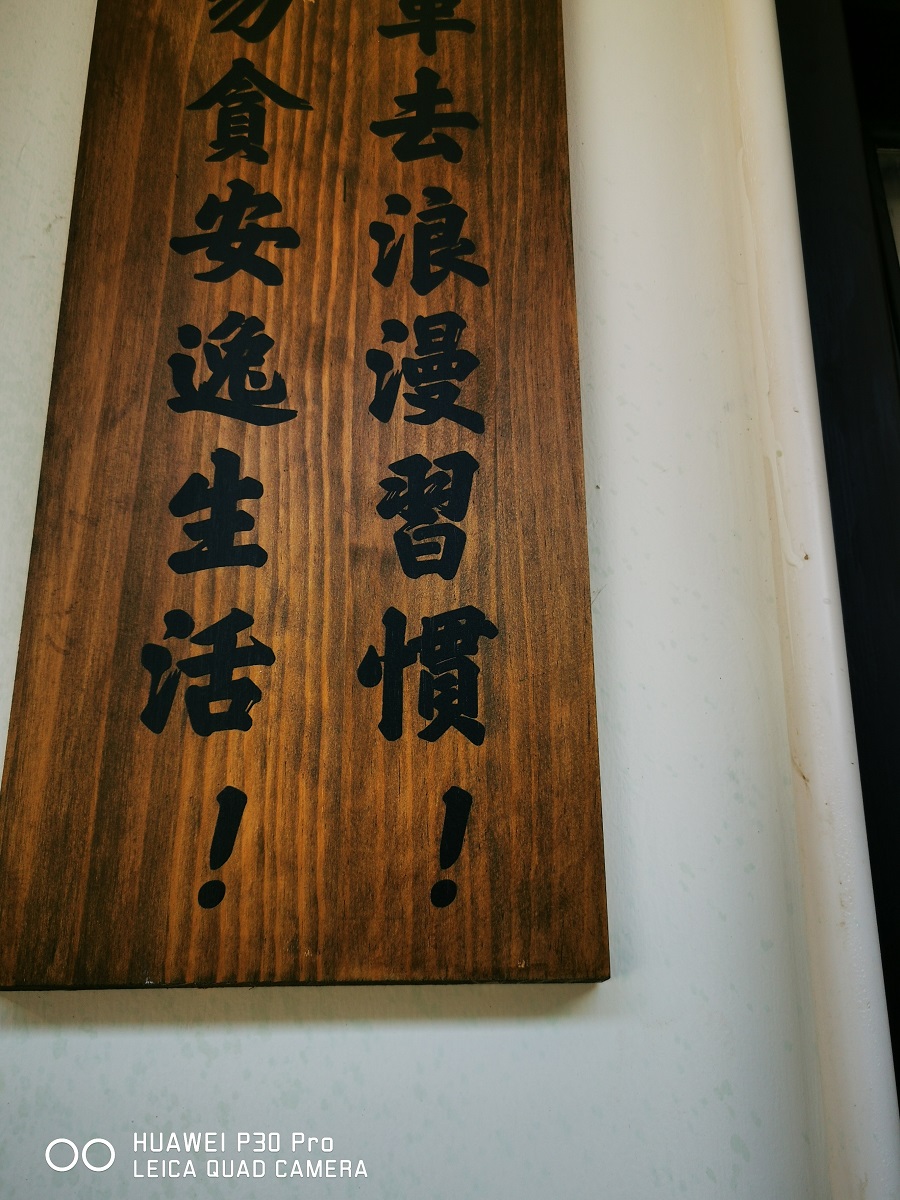 去浪漫習慣！
勿貪安逸生活！
HUAWEI P30 Pro
LEICA QUAD CAMERA